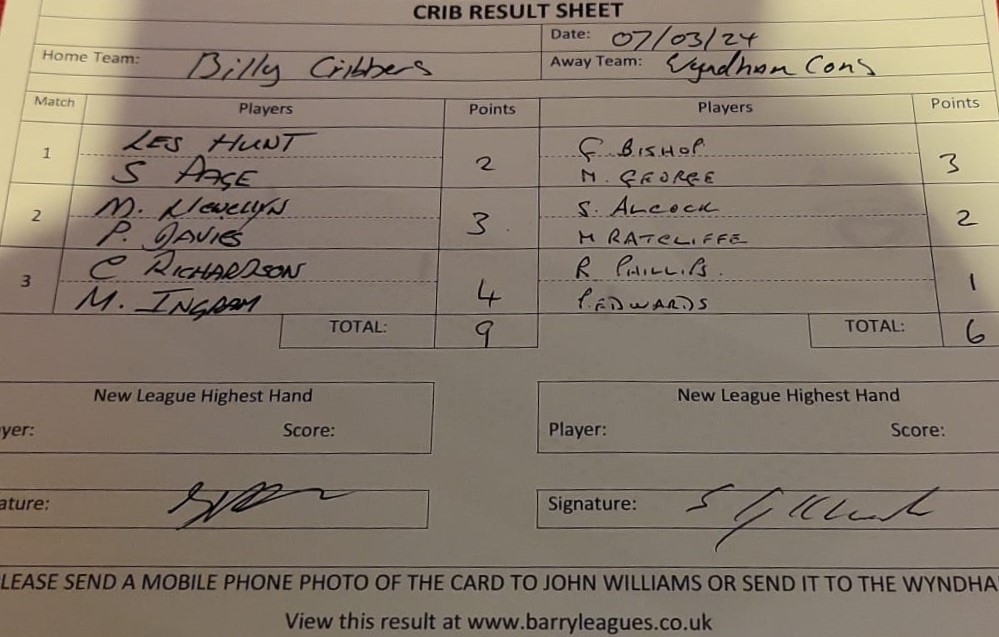 CRIB RESULT SHEET
Date: 07/03/24
Home Team: Billy Cribbers Away Team: Wyndham Cons
Match Players Points Players Points
1 LES HUNT 2 G BISHOP 3
S PAGE M. GEORGE
2 M. Llewellyn 3 S. ALCOCK 2
P. DAVIES M RATCLIFFE
3 C RICHARDSON 4 R PHILLIPS. 1
M. INGRAM P. EDWARDS
TOTAL: 9 TOTAL: 6
New League Highest Hand New League Highest Hand
yer: Score: Player: Score:
ature: Signature:
LEASE SEND A MOBILE PHONE PHOTO OF THE CARD TO JOHN WILLIAMS OR SEND IT TO THE WYNDHA
View this result at www.barryleagues.co.uk